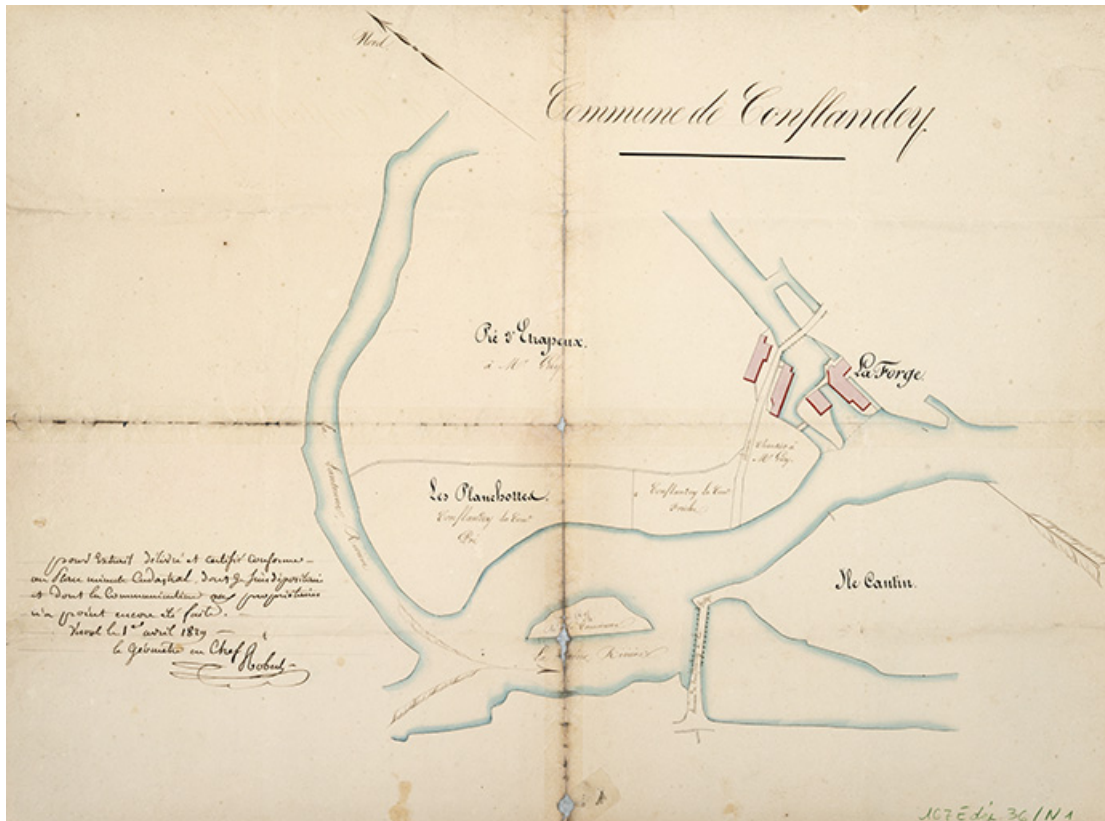 Nord.
Commune de Conflandey.
Pré d'Etrapeux.
à Mr
La Forge.
à
Mr
Les Planchottes.
Conflandey la Com
Pré
Conflandey la Com
La Lanterne Rivière
Ile Cantin.
La Rivière
pour Extrait délivré et certifié conforme
au Plan minute Cadastral, dont je suis dépositaire
et dont la Communication aux propriétaires
n'a point encore été faite.
Vesoul le 1er avril 1829
le Géomètre en Chef
107 E dép. 36 / N 1